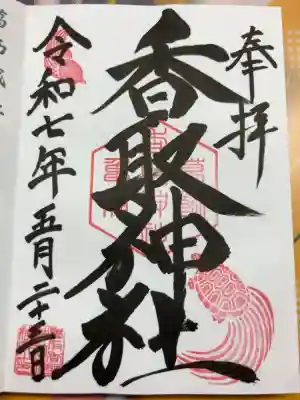 奉拝
香取神社
令和七年五月二十三日